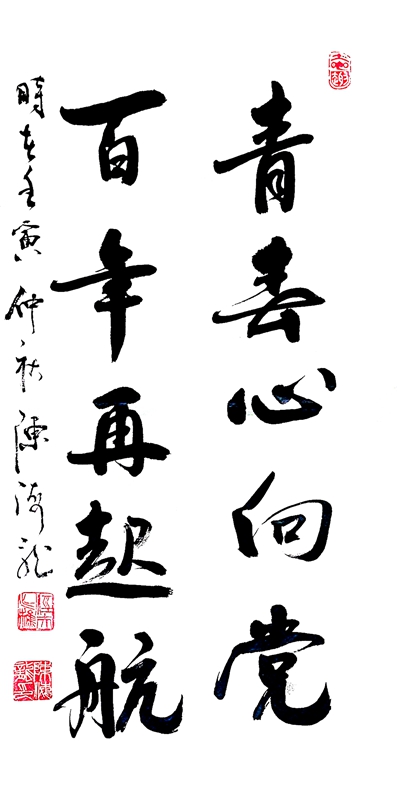 青春心向党
百年再起航
時在壬寅仲秋陳海龙